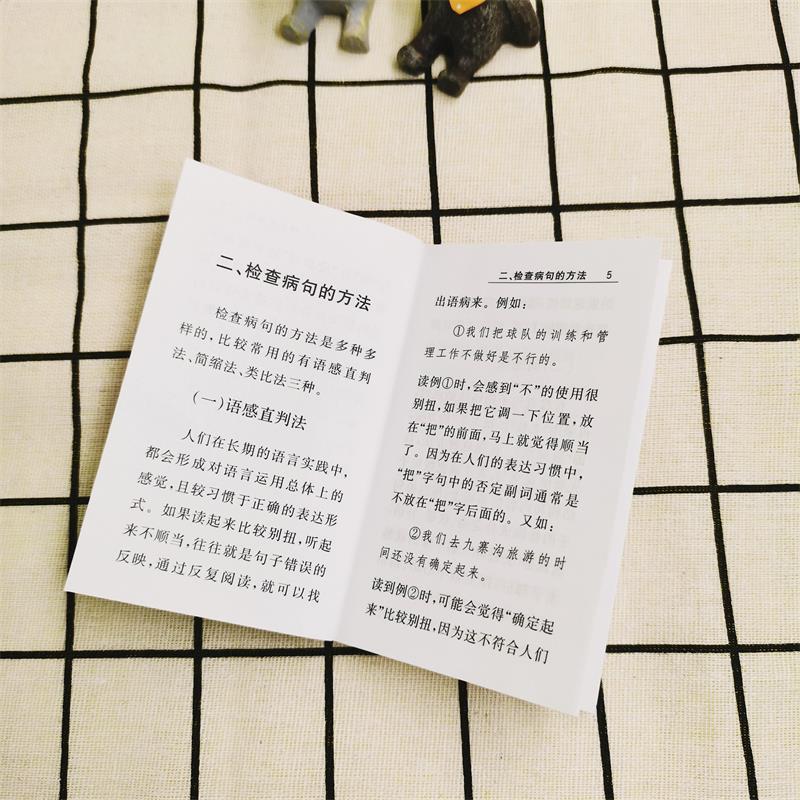 二、检查病句的方法
检查病句的方法是多种多
样的，比较常用的有语感直判
法、简缩法、类比法三种。
（一）语感直判法
人们在长期的语言实践中，
都会形成对语言运用总体上的
感觉，且较习惯于正确的表达形
式。如果读起来比较别扭，听起
来不顺当，往往就是句子错误的
反映，通过反复阅读，就可以找
二、检查病句的方法 5
出语病来。例如：
①我们把球队的训练和管
理工作不做好是不行的。
读例①时，会感到“不”的使用很
别扭，如果把它调一下位置，放
在“把”的前面，马上就觉得顺当
了。因为在人们的表达习惯中，
“把”字句中的否定副词通常是
不放在“把”字后面的。又如：
②我们去九寨沟旅游的时
间还没有确定起来。
读到例②时，可能会觉得“确定起
来”比较别扭，因为这不符合人们